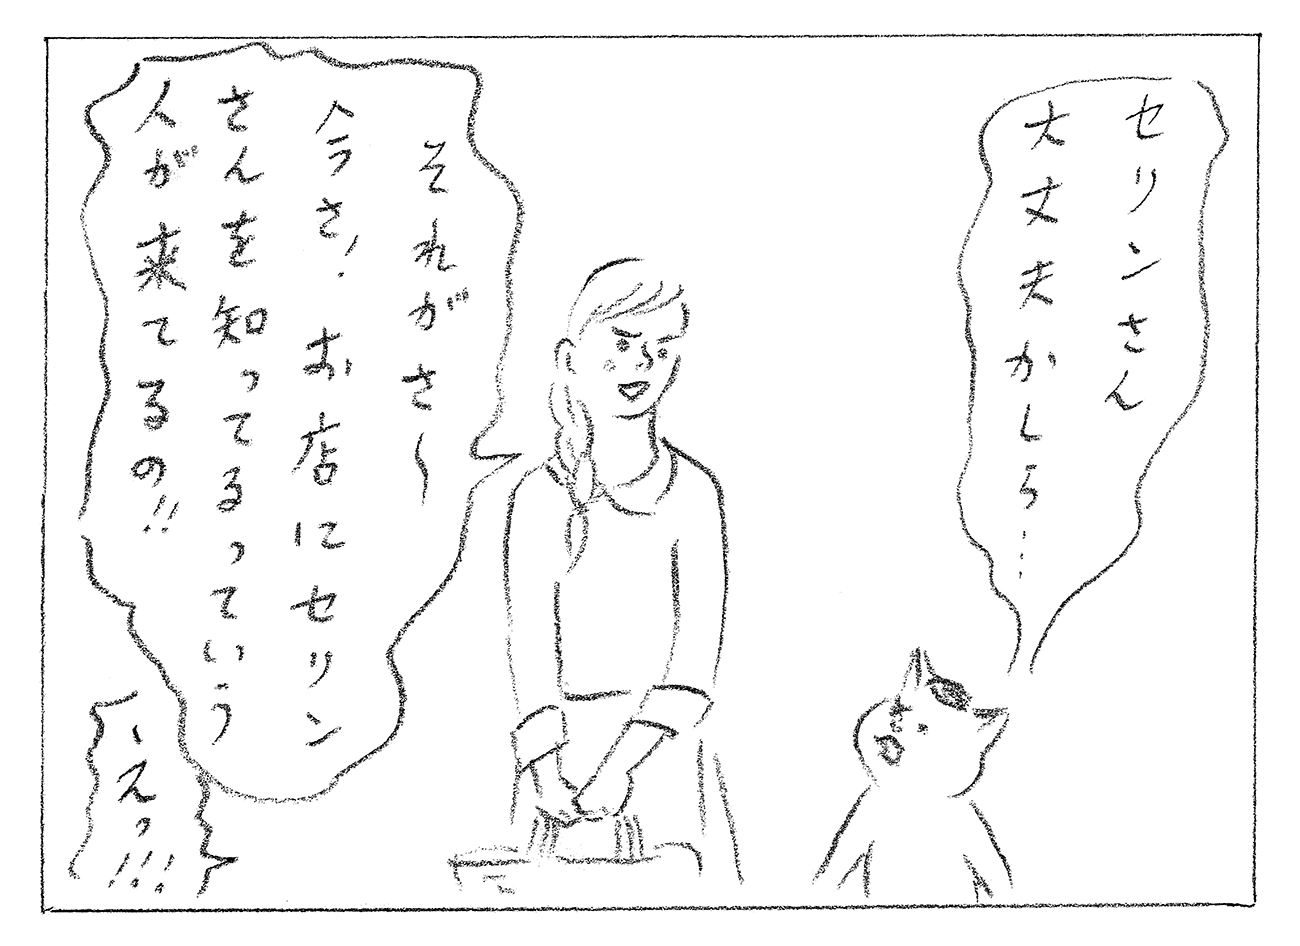 セリンさん
大丈夫かしら…
それがさ〜
今さ！お店にセリン
さんを知ってるっていう
人が来てるの!!
えっ!!!